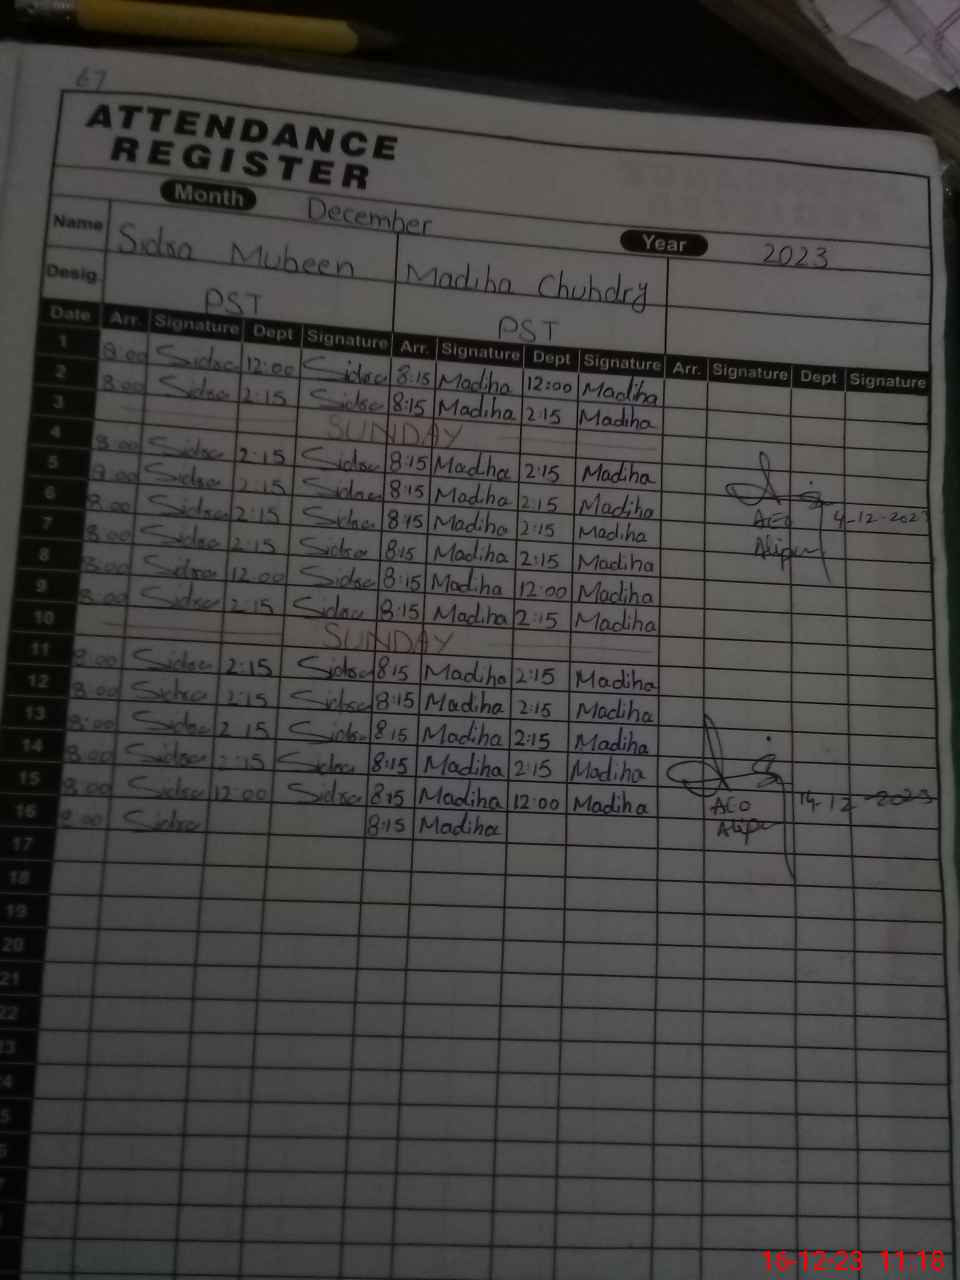 67
ATTENDANCE
REGISTER
Month December Year 2023
Name Sidsa Mubeen Madiha Chuhdry
Desig. PST PST
Date Arr. Signature Dept Signature Arr. Signature Dept Signature Arr. Signature Dept Signature
1 8:00 Sidsa 12:00 Sidsa 8:15 Madiha 12:00 Madiha
2 8:00 Sidsa 2:15 Sidsa 8:15 Madiha 2:15 Madiha
3 SUNDAY
4 8:00 Sidsa 2:15 Sidsa 8:15 Madiha 2:15 Madiha
5 8:00 Sidsa 2:15 Sidsa 8:15 Madiha 2:15 Madiha
6 8:00 Sidsa 2:15 Sidsa 8:15 Madiha 2:15 Madiha ACO 4-12-2023
7 8:00 Sidsa 2:15 Sidsa 8:15 Madiha 2:15 Madiha Alipur
8 8:00 Sidsa 12:00 Sidsa 8:15 Madiha 12:00 Madiha
9 8:00 Sidsa 2:15 Sidsa 8:15 Madiha 2:15 Madiha
10 SUNDAY
11 8:00 Sidsa 2:15 Sidsa 8:15 Madiha 2:15 Madiha
12 8:00 Sidsa 2:15 Sidsa 8:15 Madiha 2:15 Madiha
13 8:00 Sidsa 2:15 Sidsa 8:15 Madiha 2:15 Madiha
14 8:00 Sidsa 2:15 Sidsa 8:15 Madiha 2:15 Madiha
15 8:00 Sidsa 12:00 Sidsa 8:15 Madiha 12:00 Madiha ACO 14-12-2023
16 8:00 Sidsa 8:15 Madiha Alipur
17
18
19
20
21
22
23
24
5
6
7
16-12-23 11:18